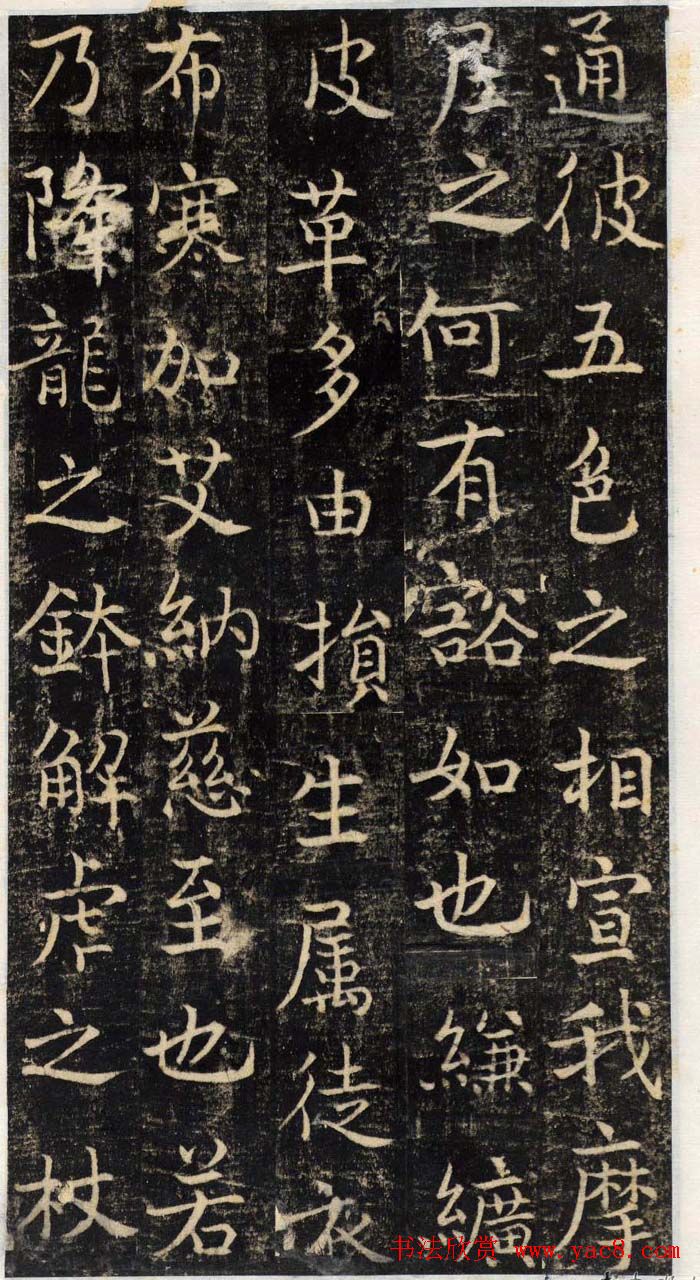 通彼五色之相宣我摩
居之何有豁如也縑纊
皮革多由損生属徒衣
布寒加艾納慈至也若
乃降龍之鉢解虎之杖
书法欣赏 www.yac8.com